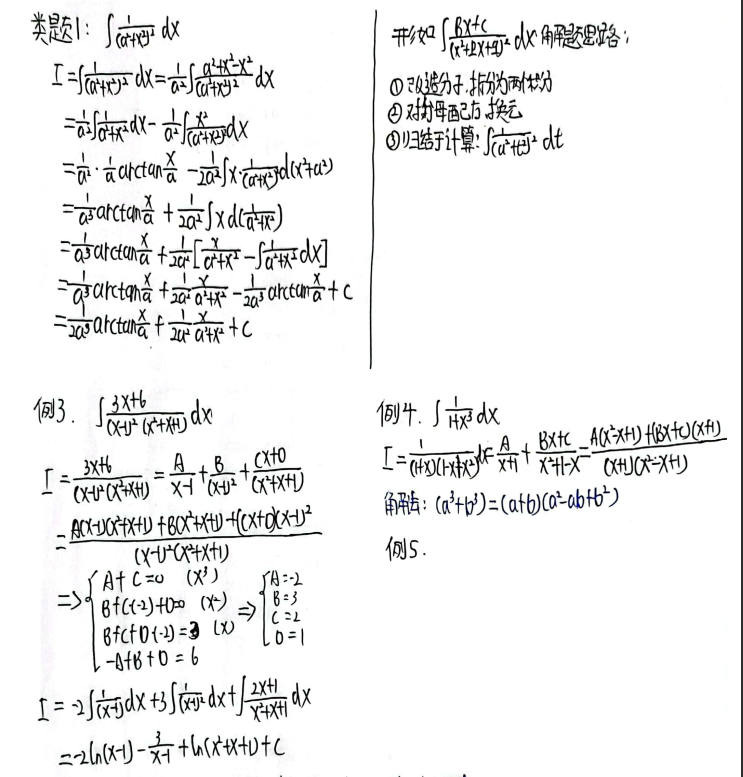 类题1: ∫ 1/(a²+x²)² dx
I = ∫ 1/(a²+x²)² dx = 1/a² ∫ (a²+x²-x²)/(a²+x²)² dx
= 1/a² ∫ 1/(a²+x²) dx - 1/a² ∫ x²/(a²+x²)² dx
= 1/a² · 1/a arctan x/a - 1/2a² ∫ x · 1/(a²+x²)² d(x²+a²)
= 1/a³ arctan x/a + 1/2a² ∫ x d(1/(a²+x²))
= 1/a³ arctan x/a + 1/2a² [x/(a²+x²) - ∫ 1/(a²+x²) dx]
= 1/a³ arctan x/a + 1/2a² x/(a²+x²) - 1/2a³ arctan x/a + C
= 1/2a³ arctan x/a + 1/2a² x/(a²+x²) + C
形如 ∫ (Bx+C)/(x²+px+q)² dx 解题思路:
① 改造分子,拆分为两个积分
② 对分母配方,换元
③ 归结于计算: ∫ 1/(a²+t²)² dt
例3. ∫ (3x+6)/((x-1)²(x²+x+1)) dx
I = (3x+6)/((x-1)²(x²+x+1)) = A/(x-1) + B/(x-1)² + (Cx+D)/(x²+x+1)
= (A(x-1)(x²+x+1)+B(x²+x+1)+(Cx+D)(x-1)²)/((x-1)²(x²+x+1))
=> { A+C=0 (x³) => { A=-2
B+C(-2)+D=0 (x²) B=3
B+C+D(-2)=3 (x) C=2
-A+B+D=6 D=1
I = -2∫ 1/(x-1) dx + 3∫ 1/(x-1)² dx + ∫ (2x+1)/(x²+x+1) dx
= -2ln(x-1) - 3/(x-1) + ln(x²+x+1) + C
例4. ∫ 1/(1+x³) dx
I = 1/((1+x)(1-x+x²)) dx = A/(x+1) + (Bx+C)/(x²+1-x) = (A(x²-x+1)+(Bx+C)(x+1))/((x+1)(x²-x+1))
解法: (a³+b³)=(a+b)(a²-ab+b²)
例5.